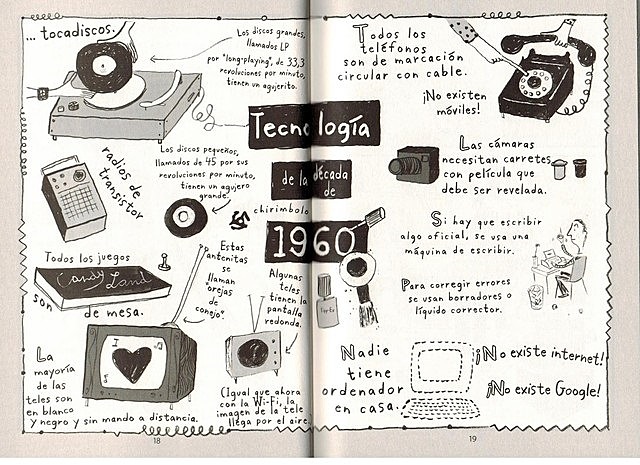 ... tocadiscos.
Los discos grandes,
llamados LP
por "long-playing", de 33,3
revoluciones por minuto,
tienen un agujerito.
Los discos pequeños,
llamados de 45 por sus
revoluciones por minuto,
tienen un agujero
grande.
chirimbolo
radios de
transistor
Todos los juegos
Candy Land
son de mesa.
Estas
antenitas
se
llaman
"orejas
de
conejo"
Algunas
teles
tienen la
pantalla
redonda.
La
mayoría
de las
teles son
en blanco
y negro y sin mando a distancia.
(Igual que ahora
con la Wi-Fi, la
imagen de la tele
llega por el aire.
18
Tecnología
de la década
de
1960
Todos los
teléfonos
son de marcación
circular con cable.
¡No existen
móviles!
Las cámaras
necesitan carretes
con película que
debe ser revelada.
Si hay que escribir
algo oficial, se usa una
máquina de escribir.
Para corregir errores
se usan borradores o
líquido corrector.
Nadie
tiene
ordenador
en casa.
¡No existe internet!
¡No existe Google!
19